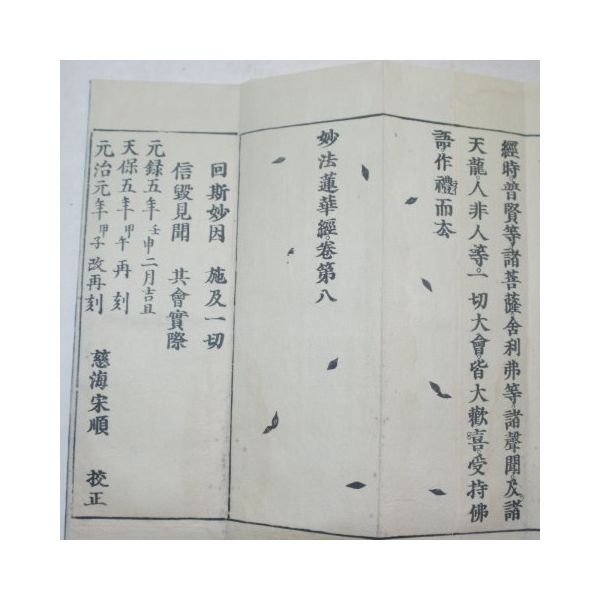 經時普賢等諸菩薩舍利弗等諸聲聞及諸
天龍人非人等一切大會皆大歡喜受持佛
語作禮而去
妙法蓮華經卷第八
回斯妙因　施及一切
信毀見聞　其會實際
元録五年壬申二月吉旦
天保五年甲午再刻
元治元年甲子改再刻　慈海宋順　挍正